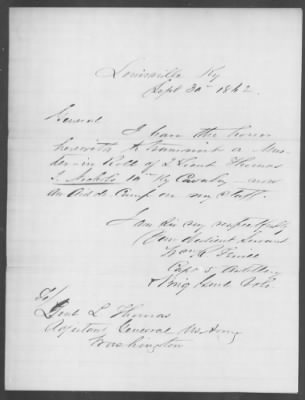 Louisville Ky
Sept 30th 1862.
General
I have the honor
herewith to transmit a Mus-
ter-in Roll of 2 Lieut Thomas
10th Ky Cavalry now
an Aid de Camp on my staff.
I am Sir very respectfully
Your obedient Servant
Capt 5 Artillery
& Brig Genl Vols
To/
Genl L Thomas
Adjutant General US Army
Washington